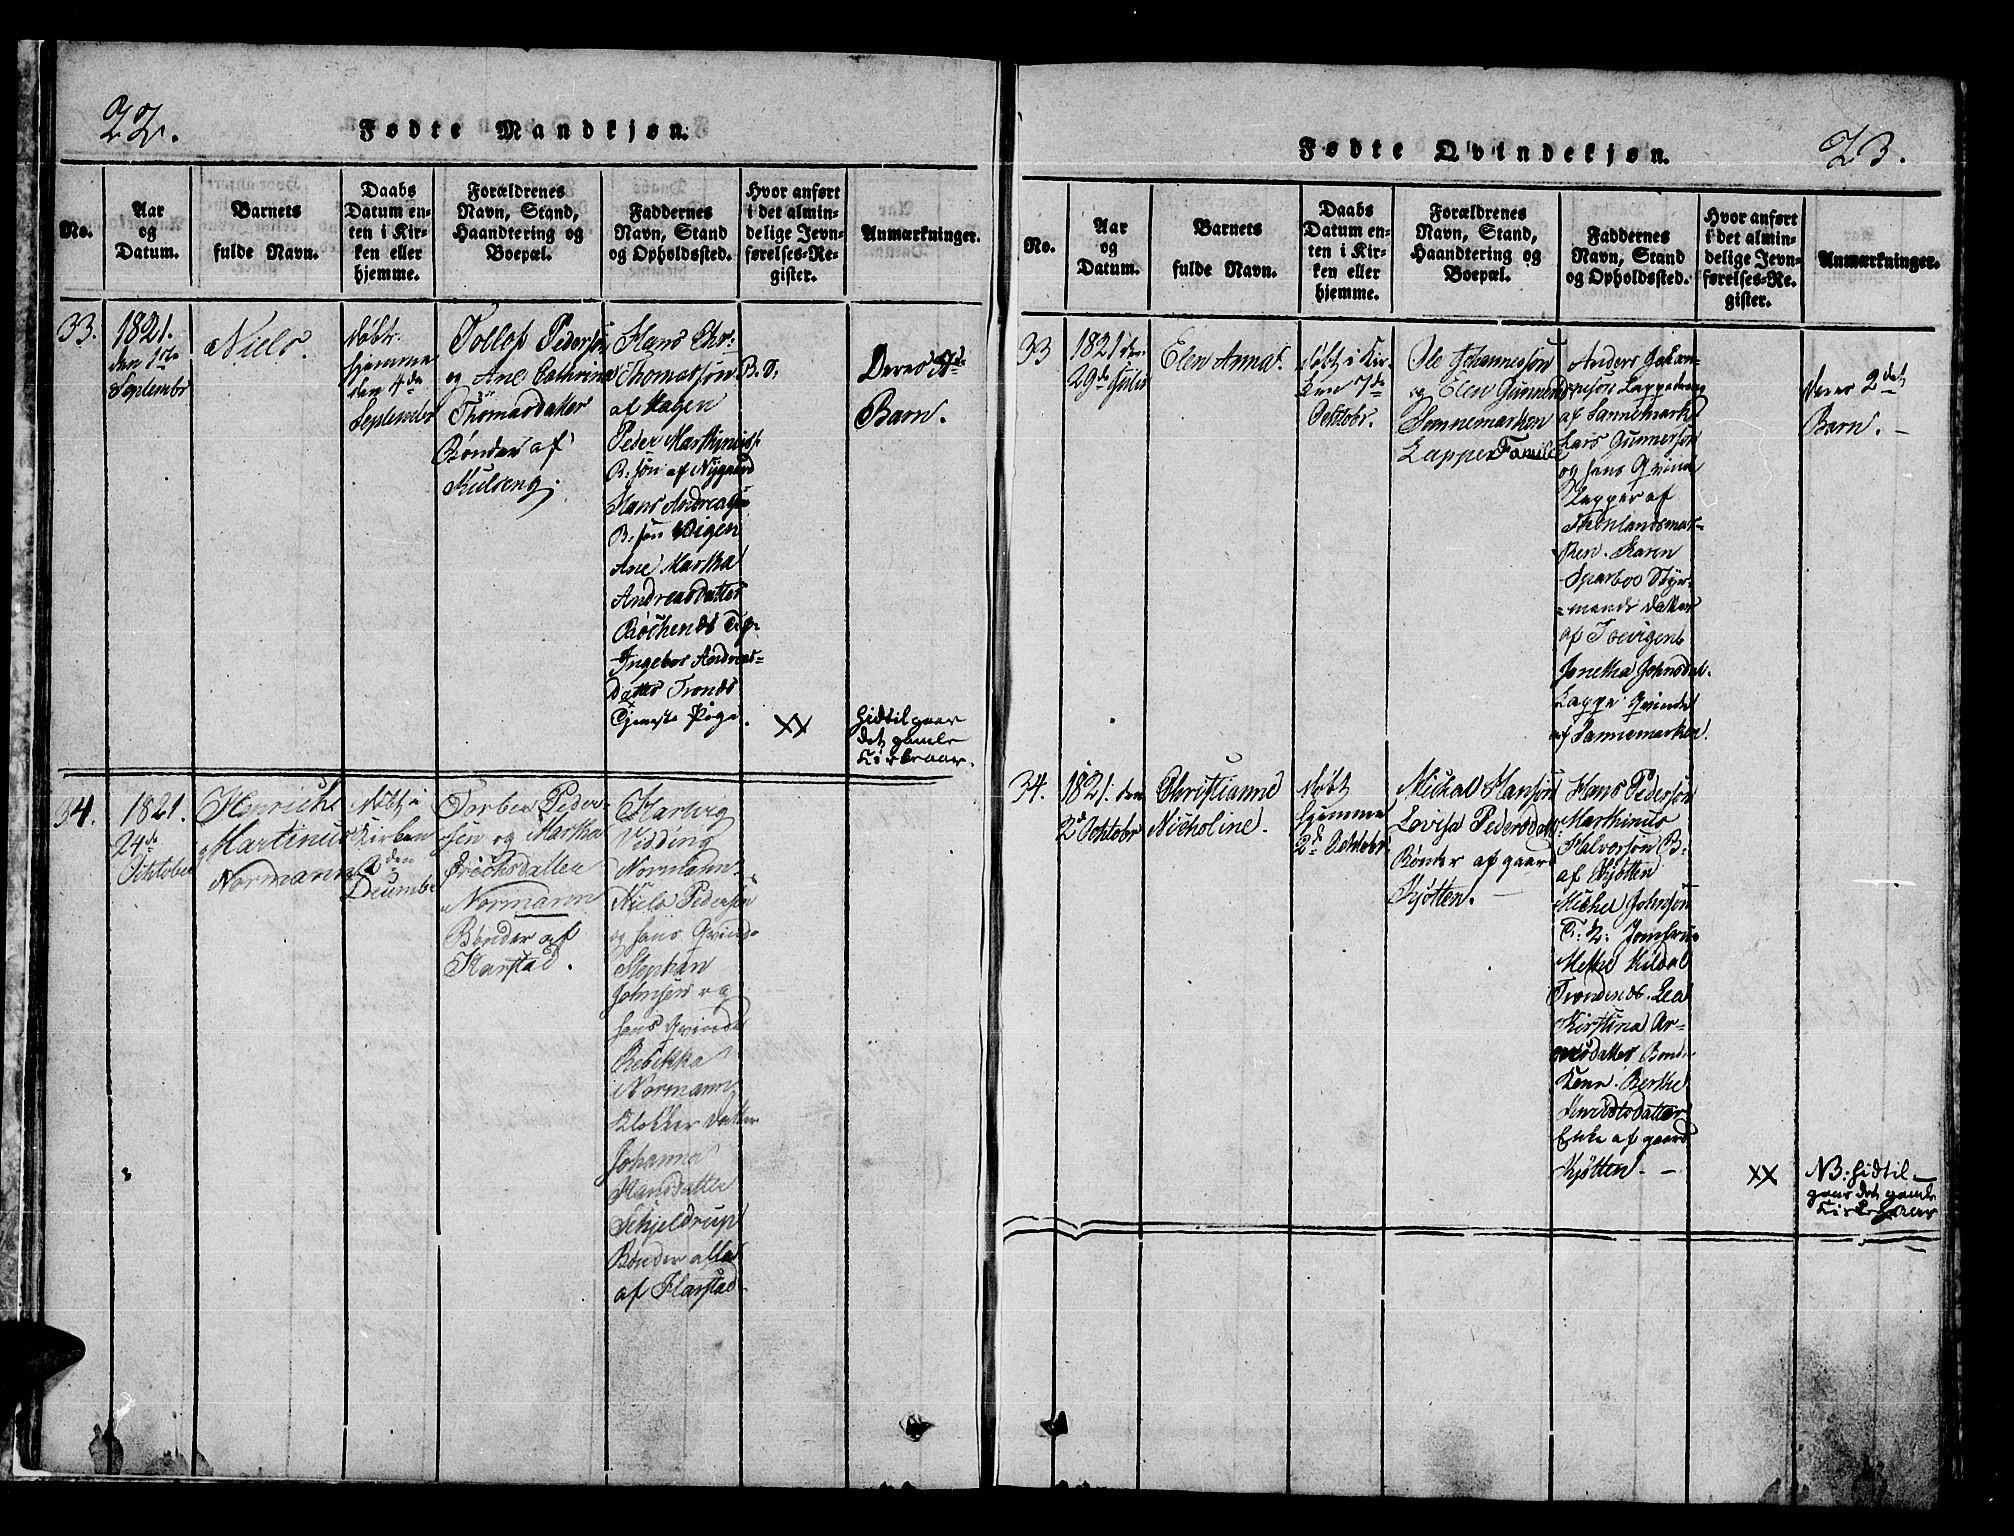 22.
Fødte Mandkjøn.
No.
Aar
og
Datum.
Barnets
fulde Navn.
Daabs
Datum en-
ten i Kir-
ken eller
hjemme.
Forældrenes
Navn, Stand,
Haandtering og
Boepæl.
Faddernes
Navn, Stand
og Opholdssted.
Hvor anført
i det almin-
delige Jevn-
førelses-Re-
gister.
Anmærkninger.
33.
1821.
den 1ste
September
Niels.
døbt
hjemme
den 4de
September
Tollof Pedersen
og Ane Cathrina
Thomasdatter
Bønder af
Kulseng.
Hans Chr:
Thomassøn
af Hagen
Peder Marthinus
B: søn af Nygaard
Hans Andreas
B: søn Vigen
Ane Martha
Andreasdatter
Ingebor Andreas-
datter Tronds
Tjeneste Pige.
B. S.
XX
Deres
Barn.
hidtil gaar
det gamle
Kirkeaar.
34.
1821.
24de
October
Henrich
Martinus
Normann
døbt i
Kirken
den
Decembr
Torber Peder-
sen og Martha
Normann
Bønder af
Harstad.
Hartvig
Vidding
Normann.
Niels Pedersen
og hans Qvinde
Stephan
Johnsen og
hans Qvinde
Rebekka
Normann
Klokker datter
Johanna
Hansdatter
Schjeldrup
Bønder alle
af Harstad
Fødte Qvindekjøn.
23.
No.
Aar
og
Datum.
Barnets
fulde Navn.
Daabs
Datum en-
ten i Kir-
ken eller
hjemme.
Forældrenes
Navn, Stand,
Haandtering og
Boepæl.
Faddernes
Navn, Stand
og Opholdssted.
Hvor anført
i det almin-
delige Jevn-
førelses-Re-
gister.
Anmærkninger.
33
1821 den
29de Julii
Elen Anna.
døbt i Kir-
ken 7de
Octobr.
Ole Johannessøn
og Elen Gunners
Sannemarken
Lapper Familie
Anders Johan-
nesøn Lappedreng
af Sannemarken
Lars Gunnersøn
og hans Qvinde
Lapper af
ken. Karen
Sparboe Styr-
mands datter
af
Jonetha Johnsdat.
Lappe Qvinde
af Sannemarken.
deres 2det
Barn. -
34.
1821. den
2de Octobr
Christianne
Nicholine.
døbt
hjemme
2de Octobr.
Michal Hansøn
Lovisa Pedersdatter
Bønder af gaard
Kjøtten. -
Hans Pedersøn
Marthinus
Halvorsøn B.
af Kjøtten
Michel Johnsøn
Jomfrue
Methe Kildal
Trondenes. Lea
Kirstina Ar-
nesdatter Bonde
Kone. Berthe
Knudtsdatter
Enke af gaard
Kjøtten. -
XX
NB: hidtil
gaar det gamle
Kirkeaar